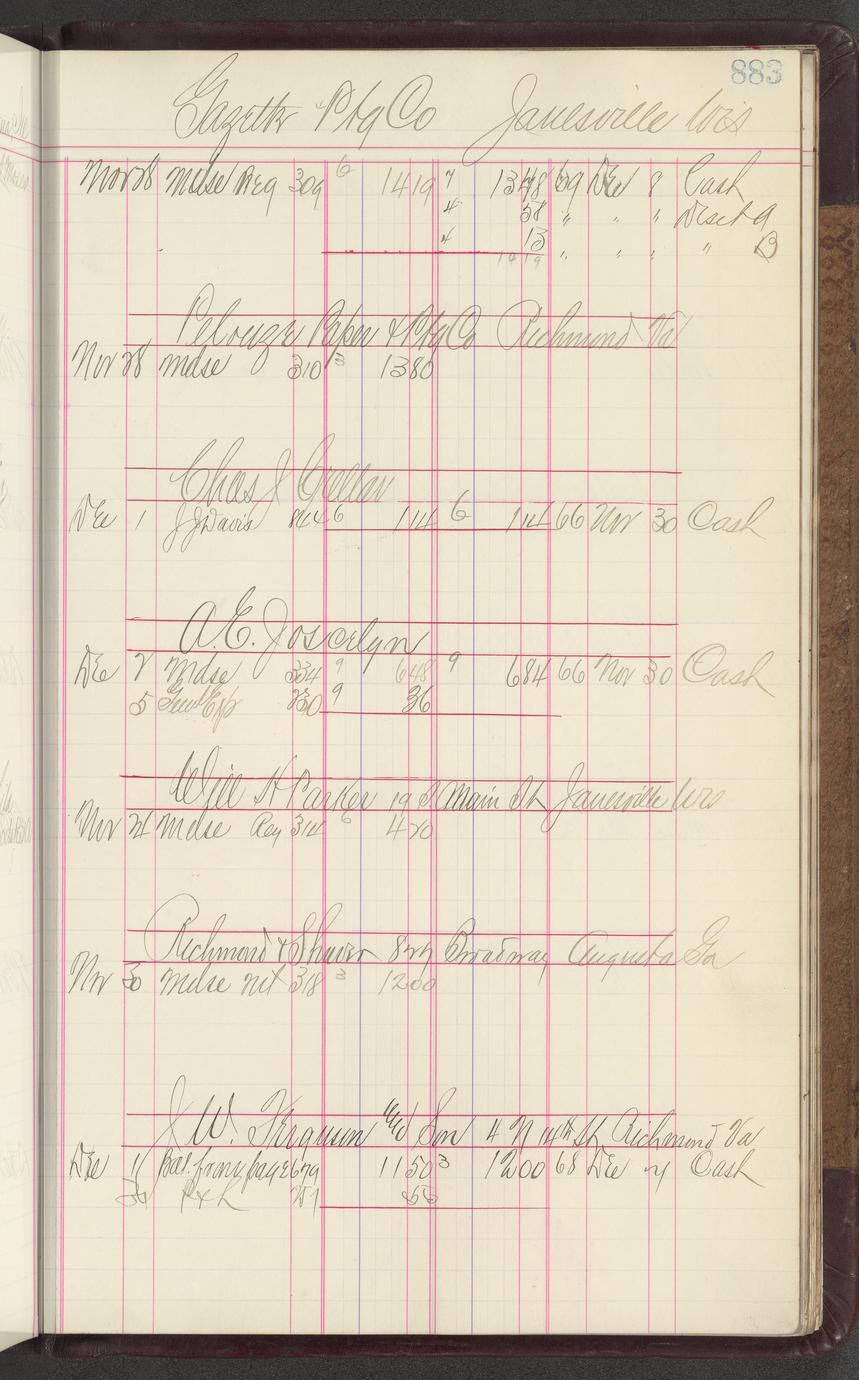 883
Gazette Ptg Co Janesville Wis
Nov 28 Mdse Reg 309 6 1419 7 1348 69 Dec 8 Cash
4 58 " " " Disct A
4 13 " " " " B
1419
Pelouze Paper & Ptg Co Richmond Va
Nov 28 Mdse 310 3 1380
Chas J
Dec 1 J J Davis 844 6 114 6 114 66 Nov 30 Cash
A. E. Joscelyn
Dec 2 Mdse 334 9 648 9 684 66 Nov 30 Cash
5 Genl Exp 230 9 36
Will H Parker 19 S Main St Janesville Wis
Nov Mdse Reg 314 6 420
Richmond & 827 Broadway Augusta Ga
Nov 30 Mdse net 318 3 1200
J W. Ferguson and Son 4 N 14th St Richmond Va
Dec 11 Bal. from page 679 1150 3 1200 68 Dec 7 Cash